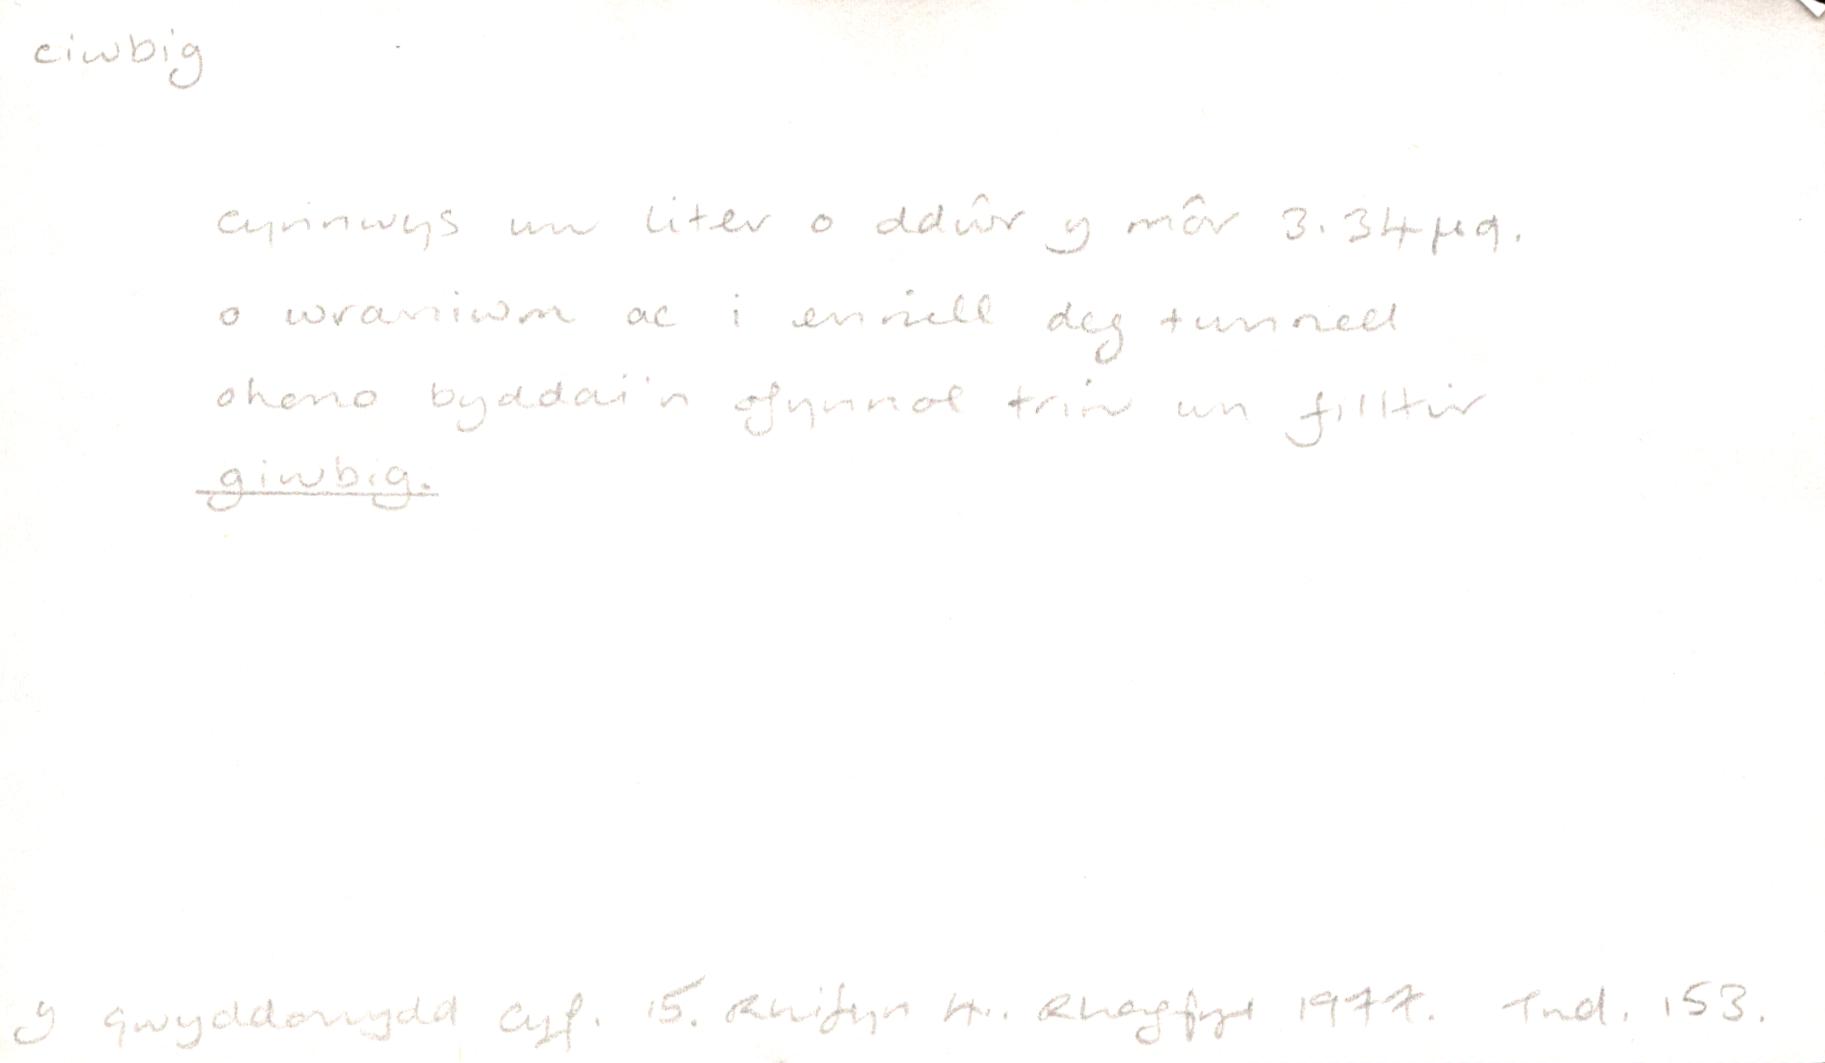 ciwbig
cynnwys un liter o ddŵr y môr 3.34µg.
o wraniwm ac i ennill deg tunnell
ohono byddai'n ofynnol trin un filltir
giwbig.
y gwyddonydd cyf. 15. Rhifyn 4. Rhagfyr 1977. Tud. 153.